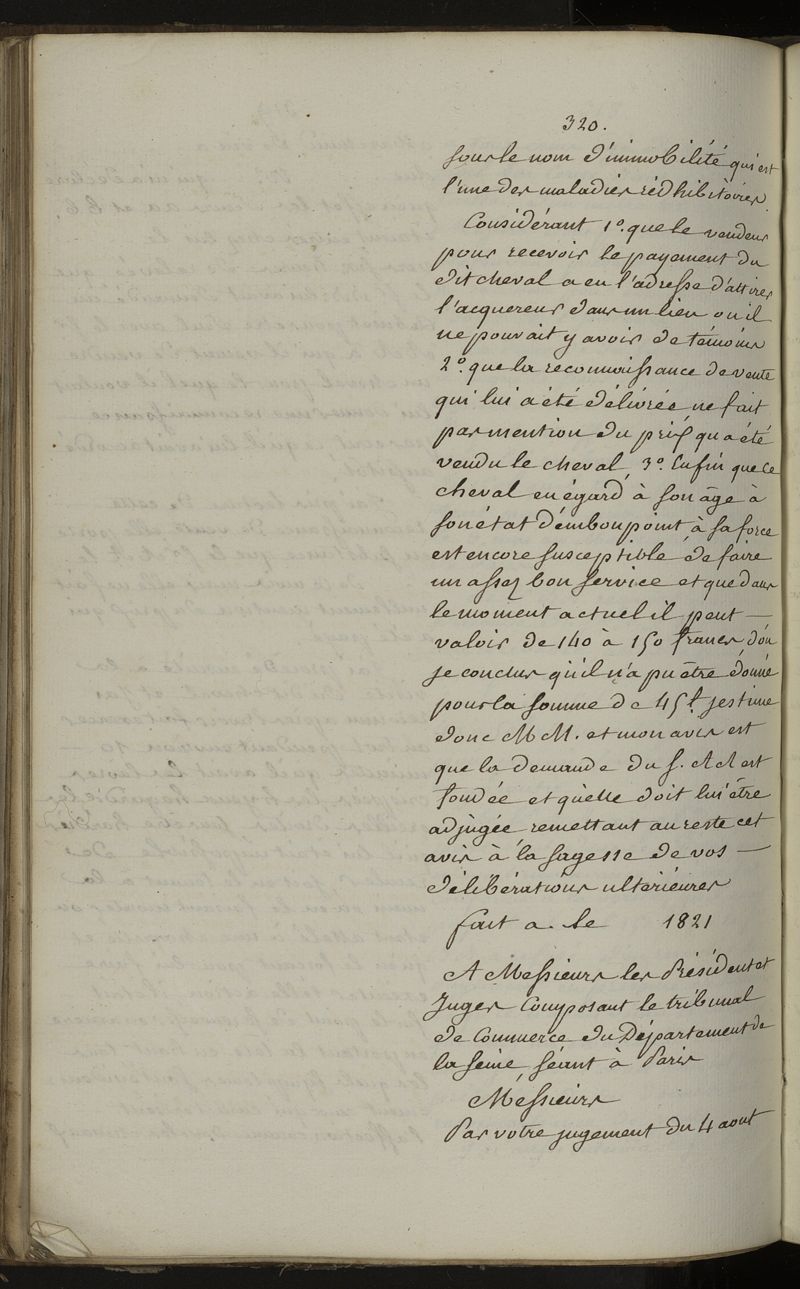 320.
sous le nom d'immobilité qui est
l'une des maladies rédhibitoires.
Considérant 1° que le vendeur
pour recevoir le payement du
dit cheval a eu l'adresse d'attirer
l'acquereur dans un lieu ou il
ne pouvait y avoir de témoins
2° que la reconnaissance de vente
qui lui a été délivrée ne fait
pas mention du prix qu a été
vendu le cheval, 3° Enfin que ce
cheval en égard à son âge à
son état d'émbonpoint à sa force
est encore susceptible de faire
un assez bon service et que dans
le moment actuel il peut —
valoir de 140 à 150 francs d'ou
je conclus qu'il n'a pu être donné
pour la somme de 45 f. j'estime
donc M M. et mon avis est
que la demande du S. A A est
fondée et qu'elle doit lui être
adjugée, remettant au reste cet
avis à la sagesse de vos —
délibérations ultérieures
fait a. le 1821
A Messieurs les Président et
Juges Composant le tribunal
de Commerce du Département de
la Seine, séant à Paris
Méssieurs
Par votre jugement du 4 aout